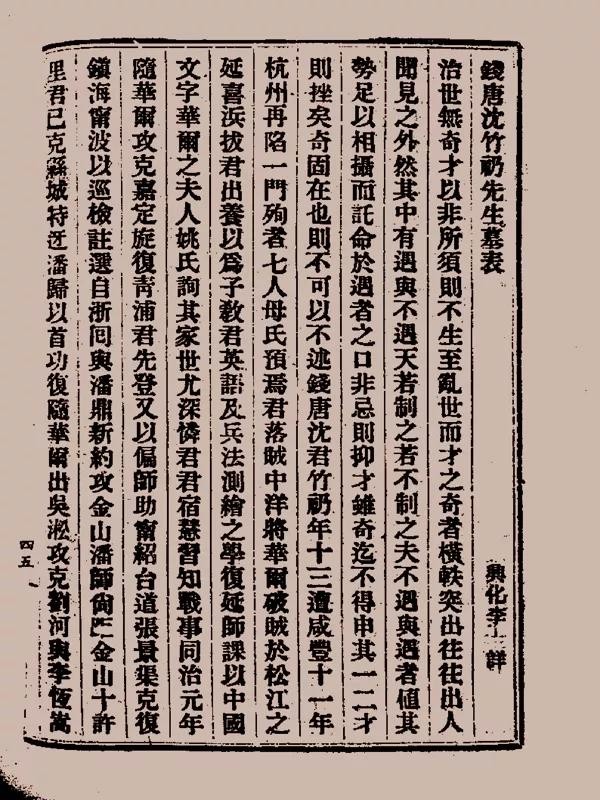 錢唐沈竹礽先生墓表
興化李詳
治世無奇才以非所須則不生至亂世而才之奇者橫軼突出往往出人
聞見之外然其中有遇與不遇天若制之若不制之夫不遇與遇者值其
勢足以相攝而託命於遇者之口非忌則抑才雖奇迄不得申其一二才
則挫矣奇固在也則不可以不述錢唐沈君竹礽年十三遭咸豐十一年
杭州再陷一門殉者七人母氏預焉君落賊中洋將華爾破賊於松江之
延喜浜拔君出養以爲子教君英語及兵法測繪之學復延師課以中國
文字華爾之夫人姚氏詢其家世尤深憐君君宿慧習知戰事同治元年
隨華爾攻克嘉定旋復靑浦君先登又以偏師助甯紹台道張景渠克復
鎭海甯波以巡檢註選自浙囘與潘鼎新約攻金山潘師尙距金山十許
里君已克縣城特迓潘歸以首功復隨華爾出吳淞攻克劉河與李恆嵩
四五